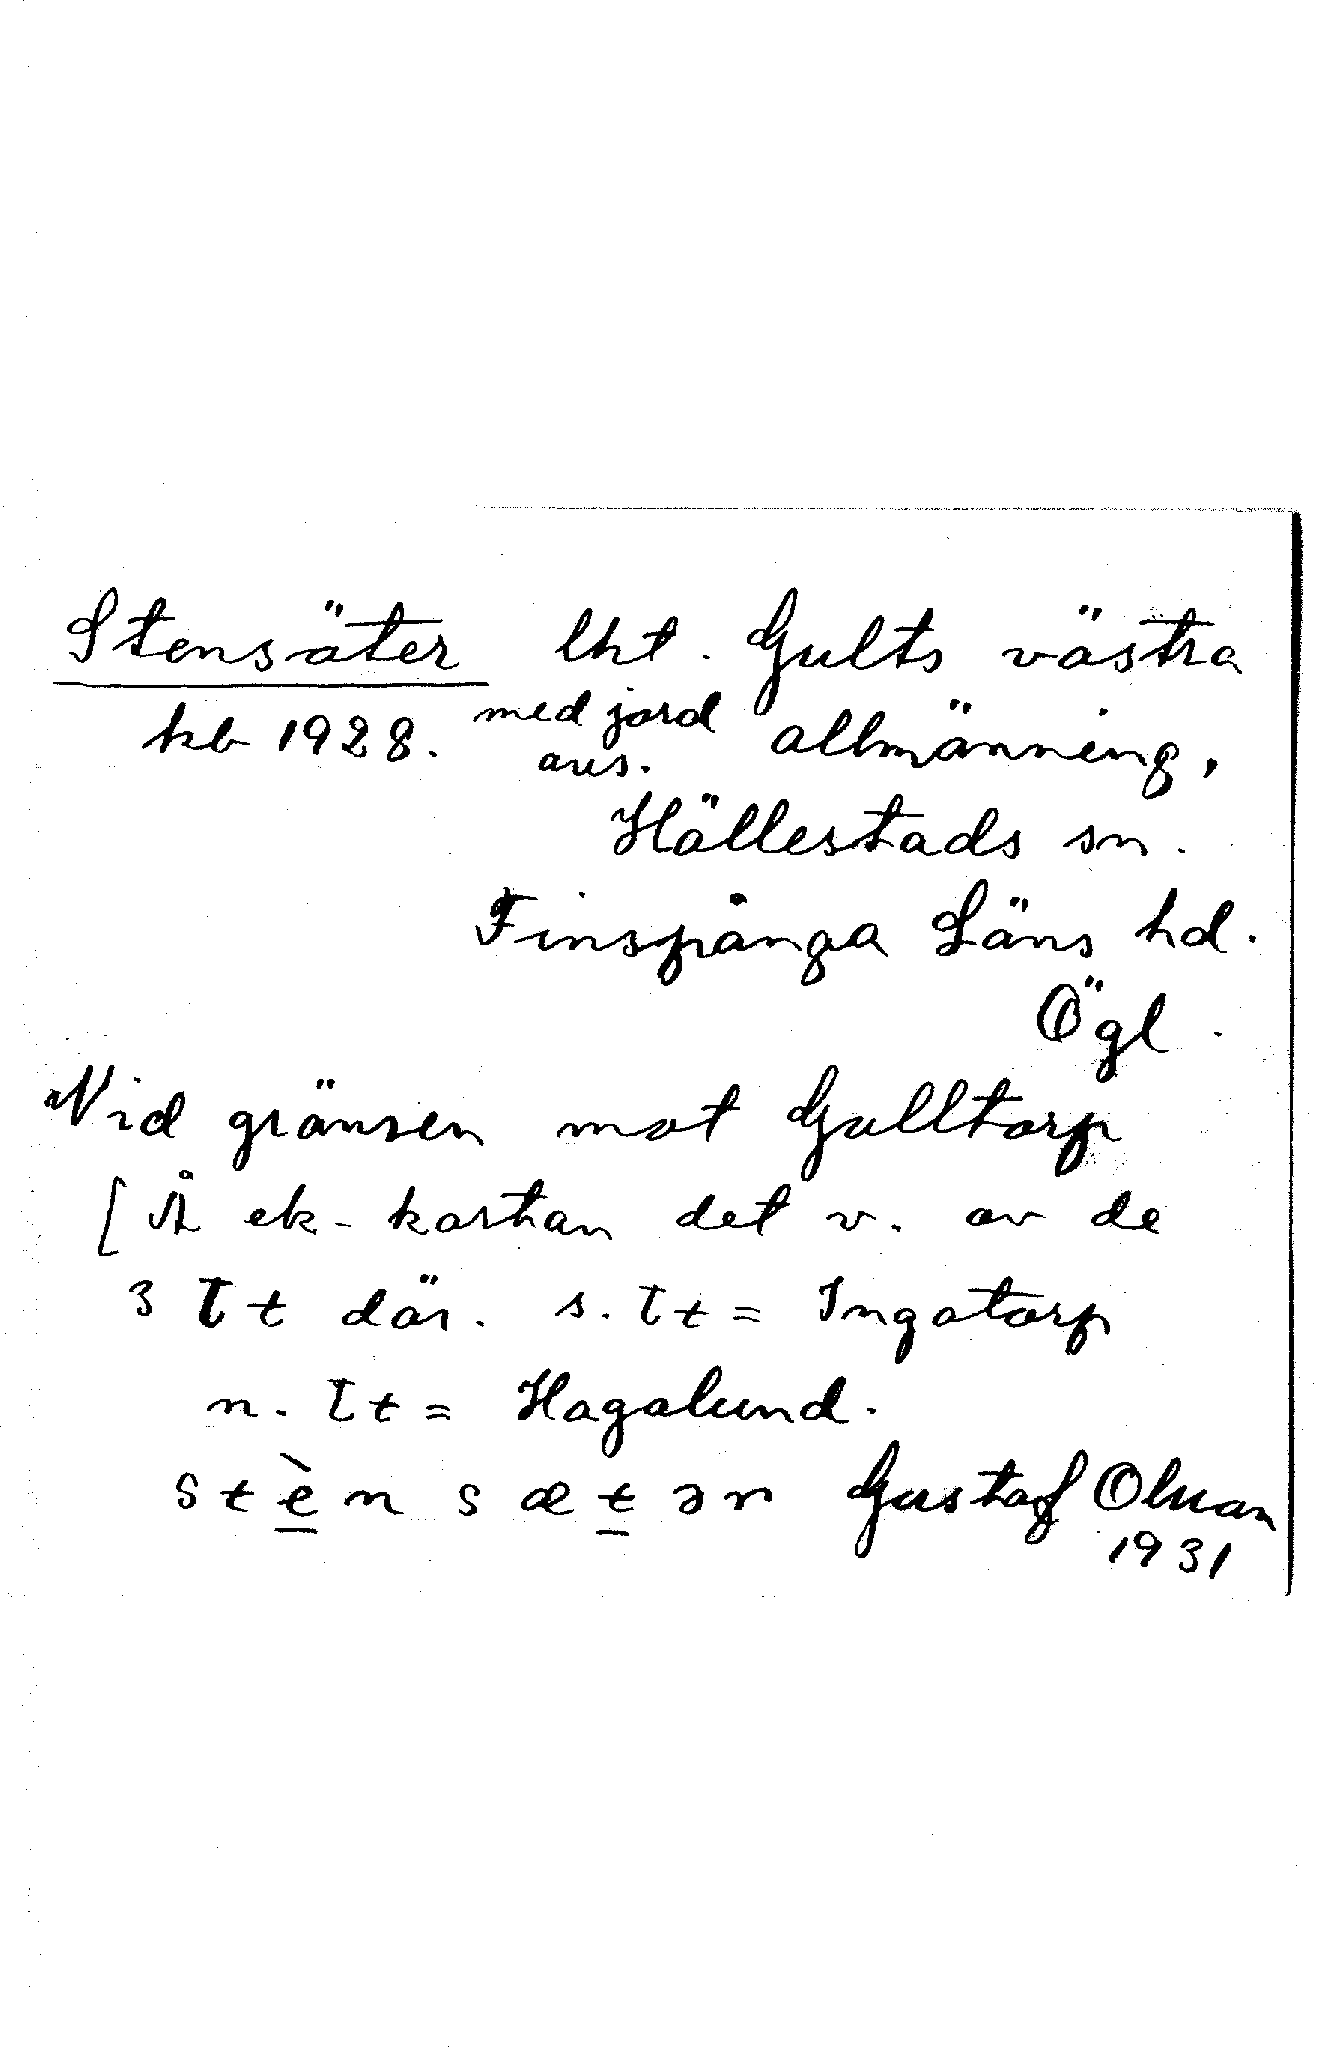 Stensäter lht. Gults västra
kb 1928. med jord allmänning,
avs.
Hällestads sn.
Finspånga Läns hd.
Ögl.
Vid gränsen mot Gulltorp
[Å ek-kartan det v. av de
3 Tt där. s. Tt = Ingatorp
n. Tt = Hagalund.
stènsætər Gustaf Olman
1931